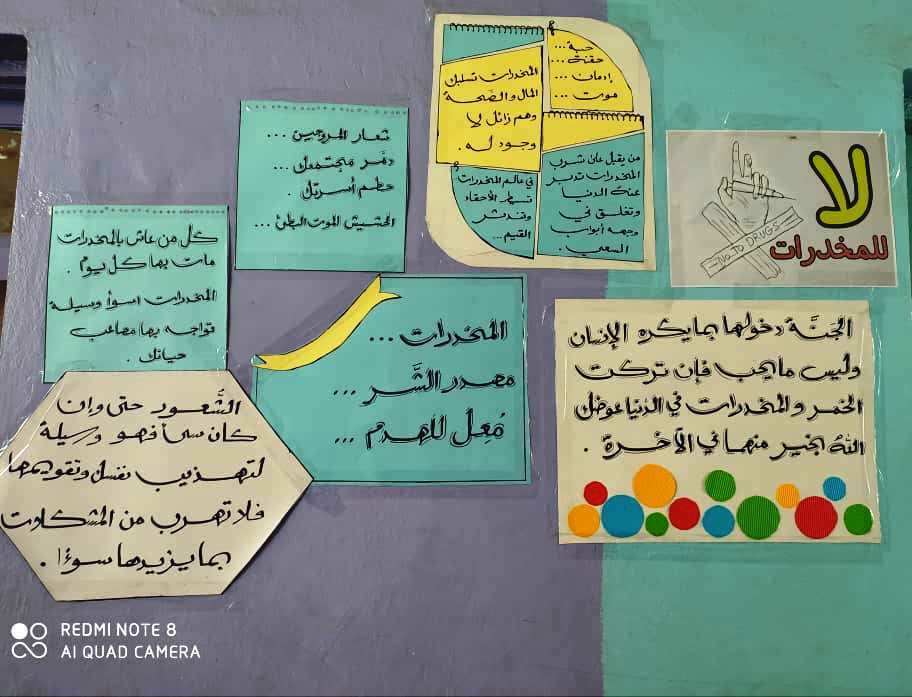 حبة...
حقنة...
إدمان...
موت...
المخدرات تسلبك
المال والصحة
وهم زائل لا
وجود له.
من يقبل على شرب
المخدرات تدبر
عنه الدنيا
وتغلق في
وجهه أبواب
السعي.
في عالم المخدرات
تسطر الأحقاد
وتندثر
القيم...
شعار المروجين...
دمر مجتمعك...
حطم أسرتك.
الحشيش الموت البطئ...
لا
للمخدرات
NO TO DRUGS
كل من عاش بالمخدرات
مات بها كل يوم.
المخدرات اسوأ وسيلة
تواجه بها مصاعب
حياتك.
المخدرات...
مصدر الشَّر...
مُعِلٌ للهدم...
الجنَّة دخولها بما يكره الإنسان
وليس ما يحب فإن تركت
الخمر والمخدرات في الدنيا عوضك
اللهُ بخير منهما في الآخرة.
الشُّعور حتى وإن
كان سئ فهو وسيلة
لتهذيب نفسك وتقويمها
فلا تهرب من المشكلات
بما يزيدها سوءًا.
REDMI NOTE 8
AI QUAD CAMERA